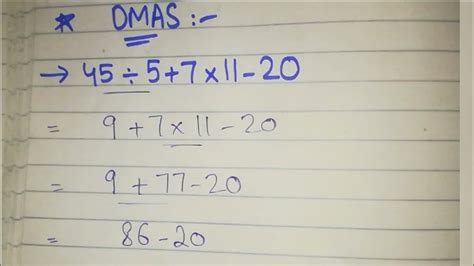 * DMAS :-
→ 45 ÷ 5 + 7 × 11 - 20
= 9 + 7 × 11 - 20
= 9 + 77 - 20
= 86 - 20